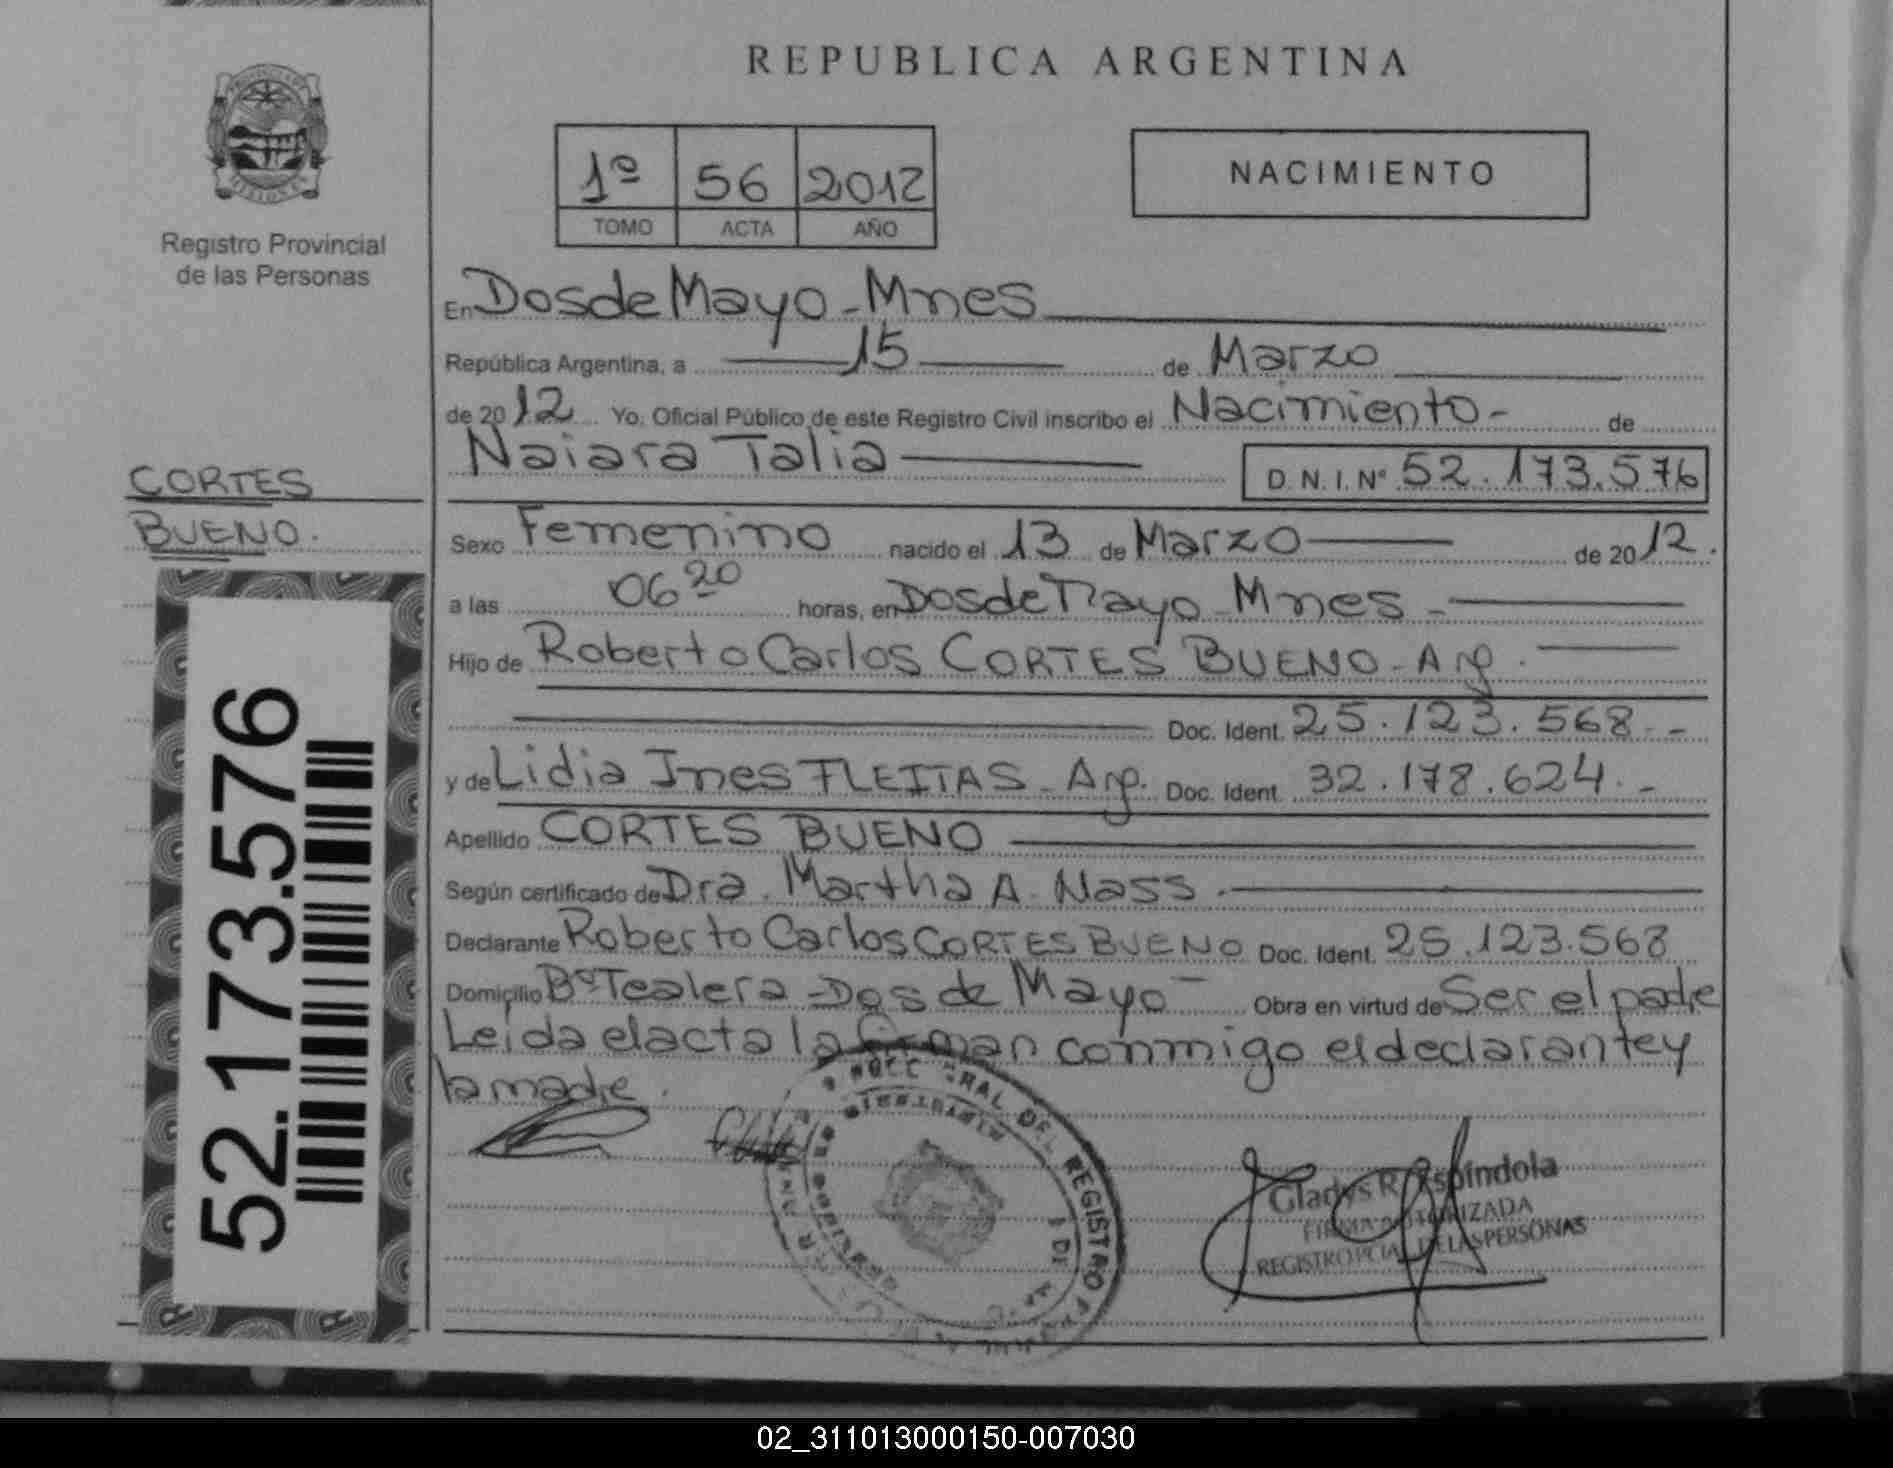 REPUBLICA ARGENTINA
Registro Provincial
de las Personas
1º 56 2012
TOMO ACTA AÑO
NACIMIENTO
En Dos de Mayo - Mnes
República Argentina, a 15 de Marzo
de 2012 Yo, Oficial Público de este Registro Civil inscribo el Nacimiento - de
Naiara Talia D.N.I. Nº 52.173.576
CORTES
BUENO.
Sexo Femenino nacido el 13 de Marzo de 2012.
a las 06 20 horas, en Dos de Mayo - Mnes -
Hijo de Roberto Carlos CORTES BUENO - Arg.
Doc. Ident. 25.123.568 -
y de Lidia Ines FLEITAS - Arg. Doc. Ident. 32.178.624. -
Apellido CORTES BUENO
Según certificado de Dra. Martha A. Nass.
Declarante Roberto Carlos CORTES BUENO Doc. Ident. 25.123.568
Domicilio Bº Tealera - Dos de Mayo - Obra en virtud de Ser el padre
Leida el acta la firman conmigo el declarante y
la madre.
52.173.576
GRAL DEL REGISTRO
Gladys R. Espíndola
FIRMA AUTORIZADA
REGISTRO PCIAL DE LAS PERSONAS
02_311013000150-007030